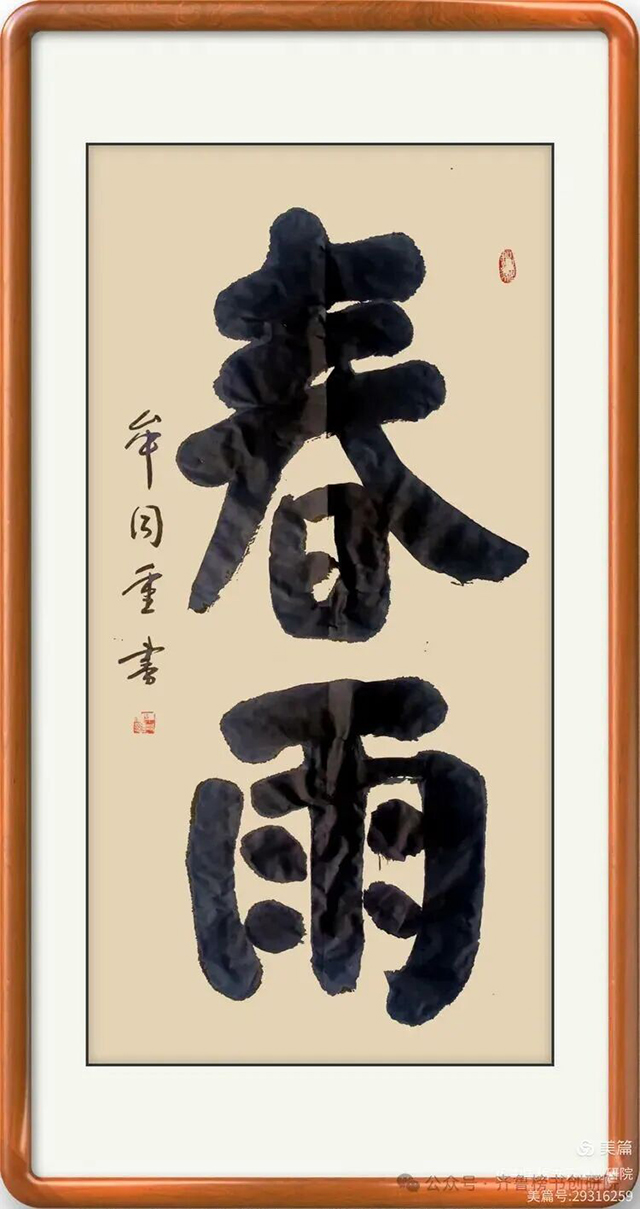 春雨
牟同重书
美篇
公众号·齐鲁榜书创研院
美篇号:29316259